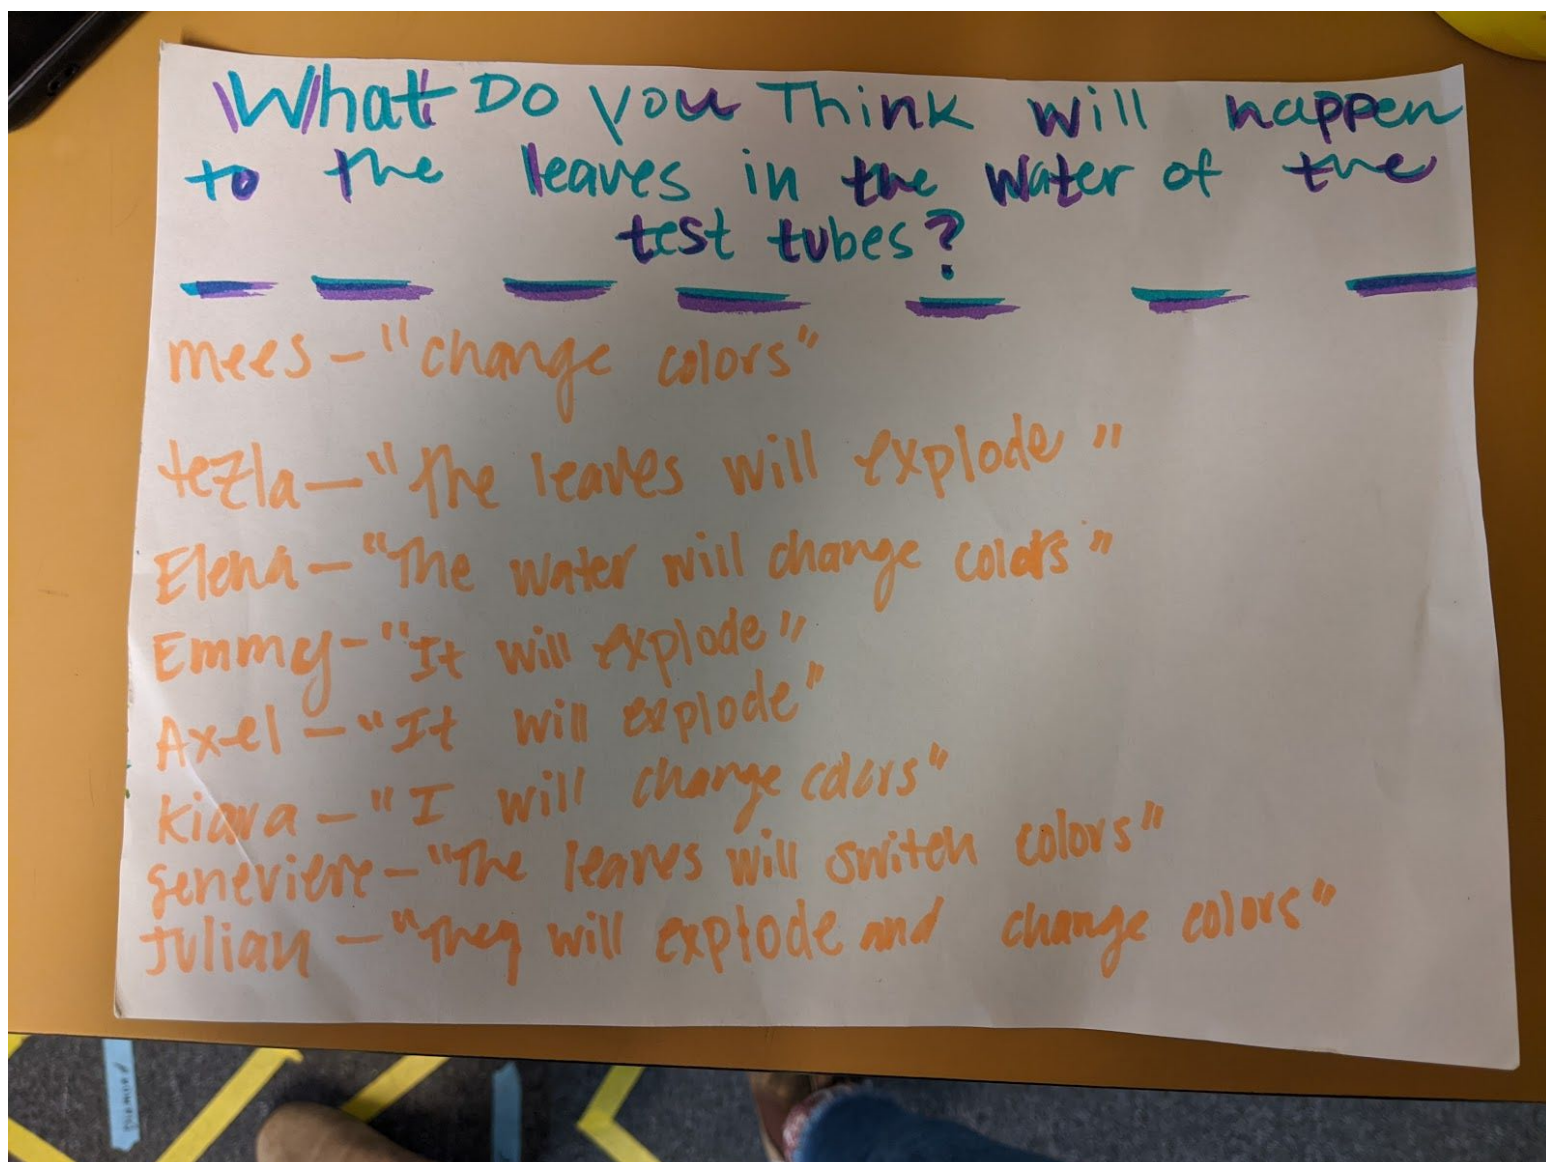 What Do you Think will happen
to the leaves in the water of the
test tubes?
mees - "change colors"
tezla - "The leaves will explode"
Elena - "The water will change colors"
Emmy - "It will explode"
Axel - "It will explode"
Kiara - "I will change colors"
Genevieve - "The leaves will switch colors"
Julian - "They will explode and change colors"